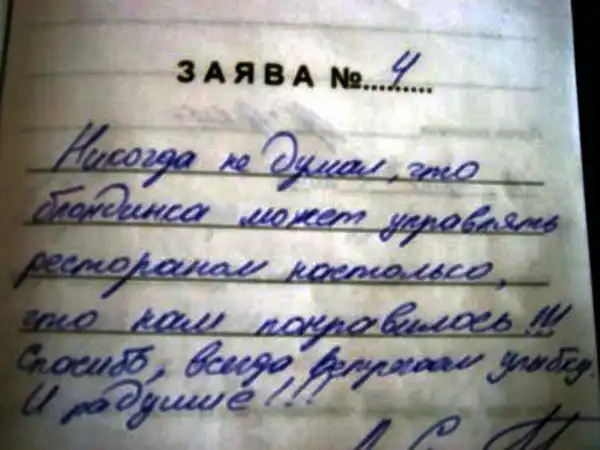 ЗАЯВА № 4
Никогда не думал, что
блондинка может управлять
рестораном настолько,
что нам понравилось!!!
Спасибо, всегда встречаем улыбку.
И радушие!!!